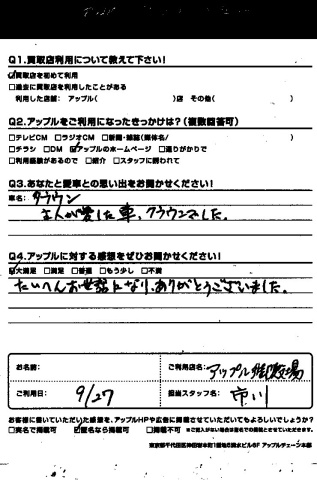 Q1.買取店利用について教えて下さい!
☑買取店を初めて利用
□過去に買取店を利用したことがある
利用した店舗: アップル( )店 その他( )
Q2.アップルをご利用になったきっかけは?(複数回答可)
□テレビCM □ラジオCM □新聞・雑誌(媒体名/ )
□チラシ □DM ☑アップルのホームページ □通りがかりで
□利用経験があるので □紹介 □スタッフに誘われて
Q3.あなたと愛車との思い出をお聞かせください!
車名: クラウン
主人が愛した車、クラウンでした。
Q4.アップルに対する感想をぜひお聞かせください!
☑大満足 □満足 □普通 □もう少し □不満
たいへんお世話になり、ありがとうございました。
お名前:
ご利用店名: アップル
ご利用日: 9/27
担当スタッフ名: 市川
お客様に書いていただいた感想を、アップルHPや広告に掲載させていただいてもよろしいでしょうか?
□実名で掲載可 ☑匿名なら掲載可 □掲載不可 ※ご記入がない場合は匿名での掲載とさせていただきます。
東京都千代田区神田 清水ビル6F アップルチェーン本部